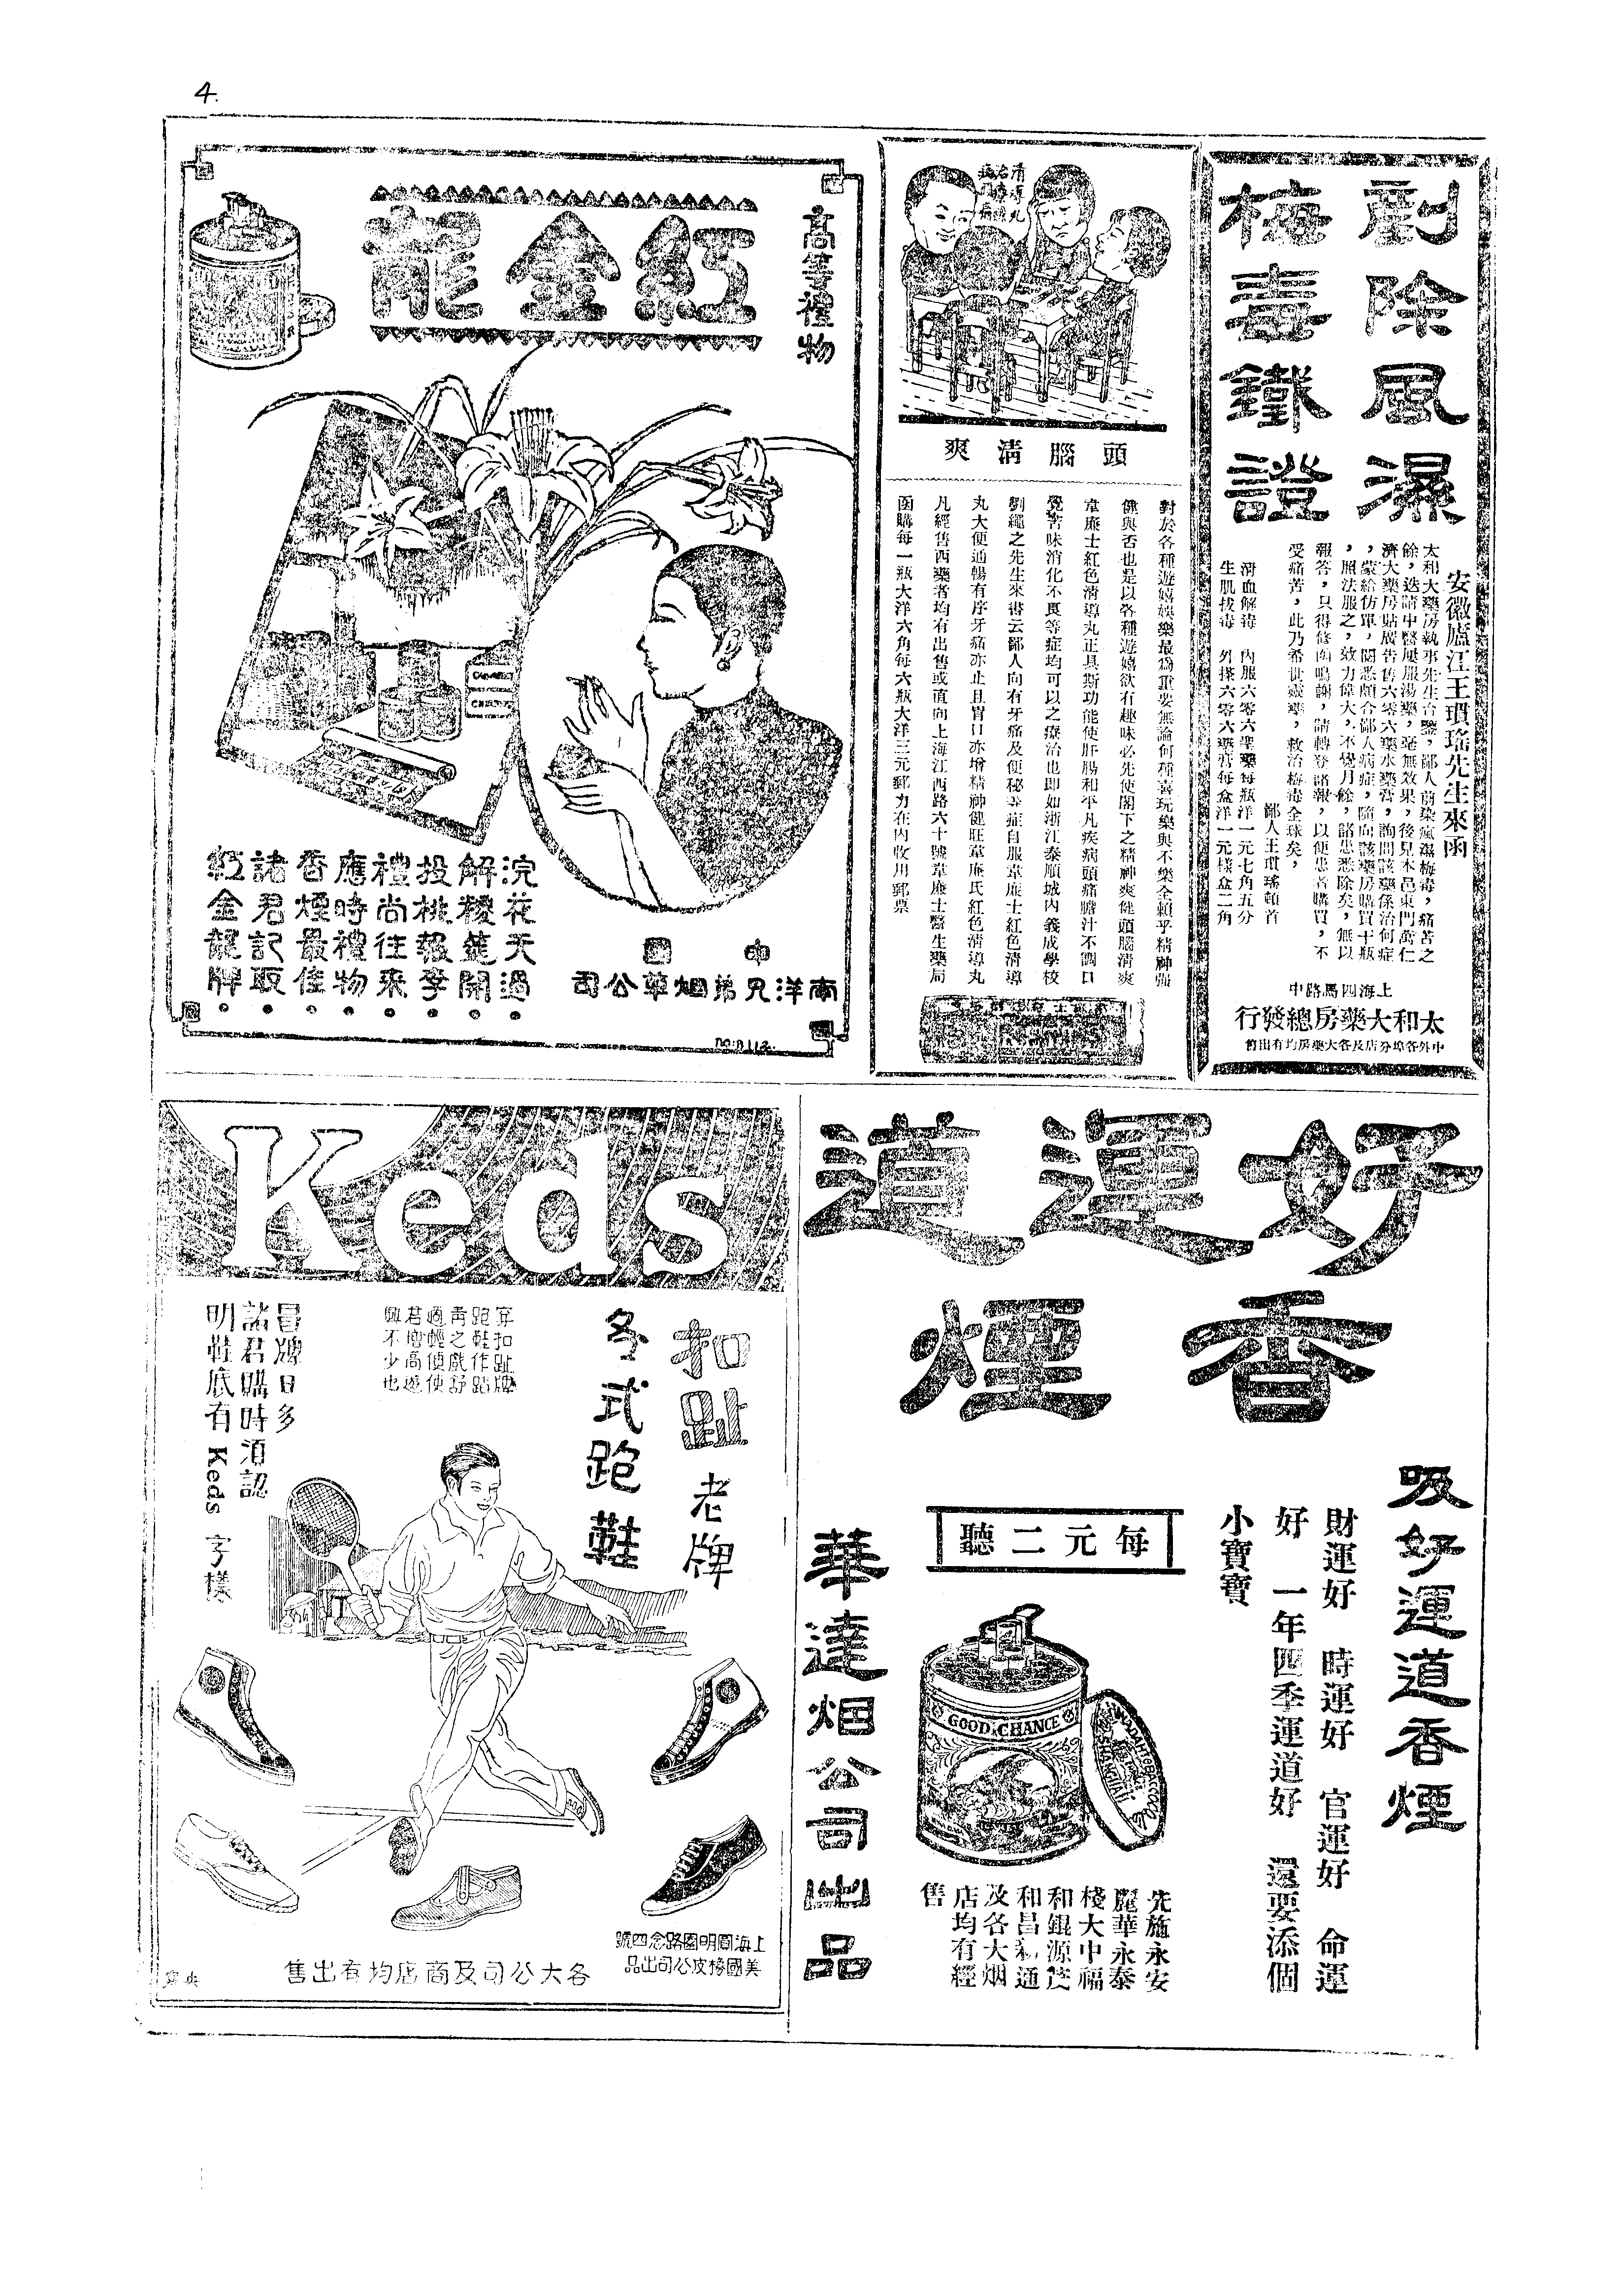 4.
劃除風濕
梅毒鐵證
安徽廬江王瓆瑤先生來函
太和大藥房執事先生台鑒，鄙人前染瘋濕梅毒，痛苦之
餘，迭請中醫屢服湯藥，毫無效果，後見本邑東門萬仁
濟大藥房貼廣告售六零六藥水藥膏，詢問該藥係治何症
，蒙給仿單，閱悉頗合鄙人病症，隨向該藥房購買十瓶
，照法服之，效力偉大，不覺月餘，諸患悉除矣，無以
報答，只得修函鳴謝，請轉登諸報，以便患者購買，不
受痛苦，此乃希世靈藥，救治梅毒全球矣，
鄙人王瓆瑤頓首
清血解毒 內服六零六聖藥每瓶洋一元七角五分
生肌拔毒 外搽六零六藥膏每盒洋一元樣盒二角
上海四馬路中
太和大藥房總發行
中外各埠分店及各大藥房均有出售
清導丸
頭腦清爽
對於各種遊嬉娛樂最為重要無論何種喜玩樂與不樂全賴乎精神强
健與否也是以各種遊嬉欲有趣味必先使閣下之精神爽健頭腦清爽
韋廉士紅色清導丸正具斯功能使肝腸和平凡疾病頭痛膽汁不調口
覺苦味消化不良等症均可以之療治也即如浙江泰順城內義成學校
劉繩之先生來書云鄙人向有牙痛及便秘等症自服韋廉士紅色清導
丸大便通暢有序牙痛亦止且胃口亦增精神健旺韋廉氏紅色清導丸
凡經售西藥者均有出售或直向上海江西路六十號韋廉士醫生藥局
函購每一瓶大洋六角每六瓶大洋三元郵力在內收用郵票
高等禮物
紅金龍
浣花天過
解糉筵開
投桃報李
禮尚往來
應時禮物
香煙最佳
諸君記取
紅金龍牌
中國
南洋兄弟烟草公司
好運道
香煙
吸好運道香煙
財運好 時運好 官運好 命運
好 一年四季運道好 還要添個
小寶寶
每元二聽
GOOD CHANCE
先施永安
麗華永泰
棧大中福
和錕源茂
和昌新通
及各大烟
店均有經
售
華達烟公司出品
Keds
扣趾老牌
各式跑鞋
穿扣趾牌
跑鞋作蹈
青之戲舒
適輕便使
君增高遊
興不少也
冒牌日多
諸君購時須認
明鞋底有 Keds 字樣
上海圓明園路念四號
美國橡皮公司出品
各大公司及商店均有出售